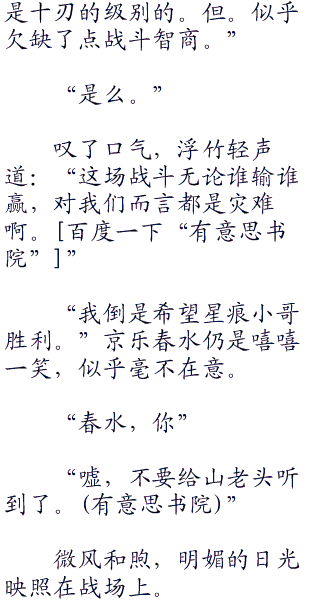 是十刃的级别的。但。似乎
欠缺了点战斗智商。”
“是么。”
叹了口气，浮竹轻声
道：“这场战斗无论谁输谁
赢，对我们而言都是灾难
啊。[百度一下“有意思书
院”]”
“我倒是希望星痕小哥
胜利。”京乐春水仍是嘻嘻
一笑，似乎毫不在意。
“春水，你”
“嘘，不要给山老头听
到了。(有意思书院)”
微风和煦，明媚的日光
映照在战场上。